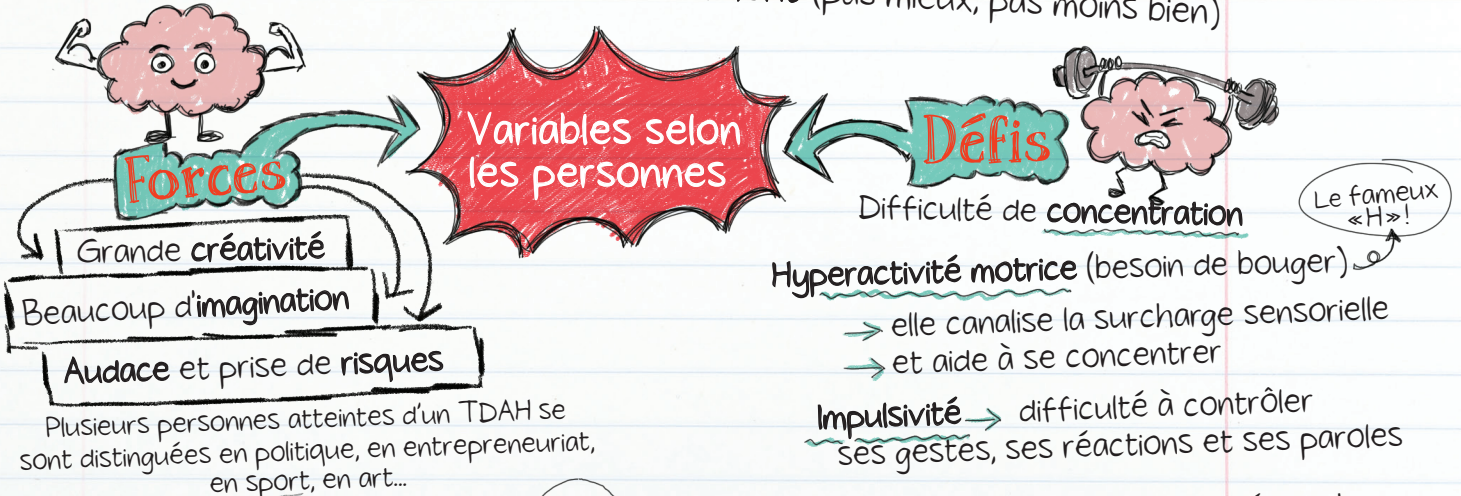 (pas mieux, pas moins bien)
Forces
Grande créativité
Beaucoup d'imagination
Audace et prise de risques
Plusieurs personnes atteintes d'un TDAH se
sont distinguées en politique, en entrepreneuriat,
en sport, en art...
Variables selon
les personnes
Défis
Difficulté de concentration
Hyperactivité motrice (besoin de bouger)
Le fameux
«H»!
→ elle canalise la surcharge sensorielle
→ et aide à se concentrer
Impulsivité → difficulté à contrôler
ses gestes, ses réactions et ses paroles